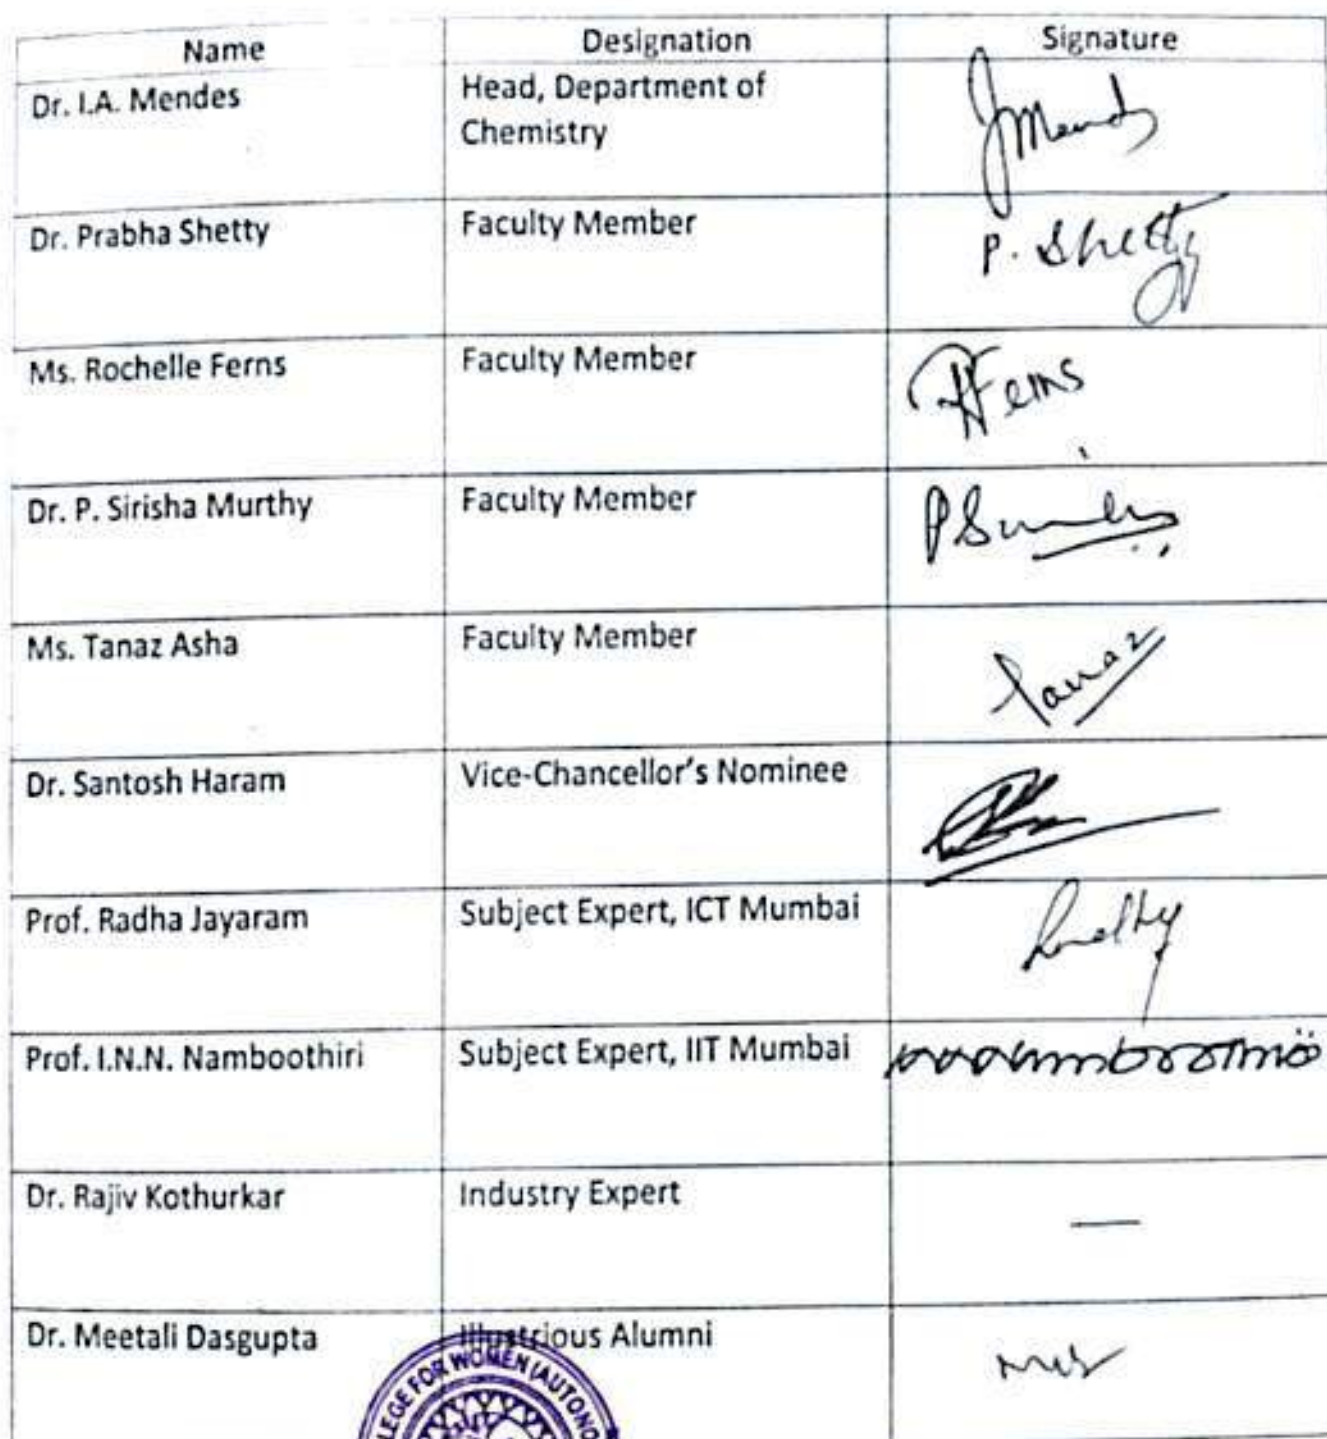 Name Designation Signature
Dr. I.A. Mendes Head, Department of
Chemistry
JMends
Dr. Prabha Shetty Faculty Member P. Shetty
Ms. Rochelle Ferns Faculty Member RFerns
Dr. P. Sirisha Murthy Faculty Member
Ms. Tanaz Asha Faculty Member Tanaz
Dr. Santosh Haram Vice-Chancellor's Nominee
Prof. Radha Jayaram Subject Expert, ICT Mumbai
Prof. I.N.N. Namboothiri Subject Expert, IIT Mumbai
Dr. Rajiv Kothurkar Industry Expert —
Dr. Meetali Dasgupta Illustrious Alumni
LEGE FOR WOMEN (AUTONO